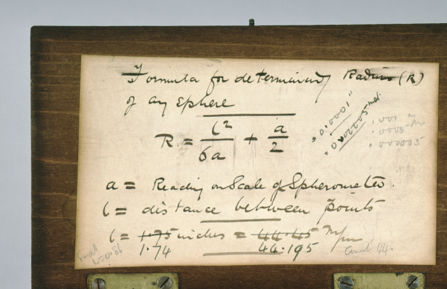 Formula for determining Radius (R)
of any sphere
R = l²/6a + a/2
a = Reading on Scale of Spherometer.
l = distance between points
l = 1.75 inches = 44.45 m/m
1.74 44.195